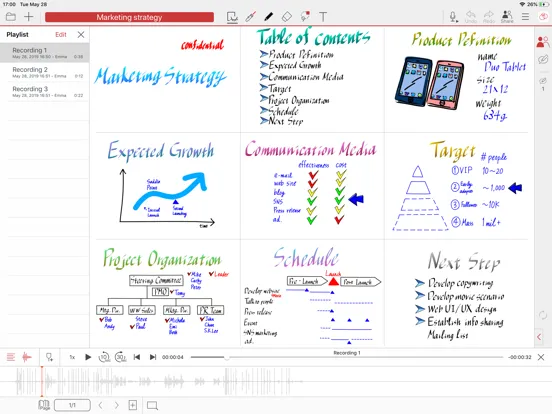 17:00 Tue May 28
26%
Marketing strategy
Undo
Redo
Share
Playlist
Edit
Recording 1
May 28, 2019 16:50 - Emma
0:38
Recording 2
May 28, 2019 16:51 - Emma
0:12
Recording 3
May 28, 2019 16:51 - Emma
0:22
1
Confidential
Marketing Strategy
Table of Contents
Product Definition
Expected Growth
Communication Media
Target
Project Organization
Schedule
Next Step
Product Definition
name
Duo Tablet
size
21×12
weight
634g
Expected Growth
Saddle Point
Initial Launch
Second Launching
time
Communication Media
effectiveness
cost
e-mail
web site
blog
SNS
Press release
ad.
Target
# people
① VIP
10~20
② Early adopter
~1,000
③ Follower
~10K
④ Mass
1 mil+
Project Organization
Steering Committee
Mike
Cathy
Peter
Leader
PMO
Tony
Mktg. Div.
WW Sales
Mktg. Div.
PR Team
Bob
Andy
Steve
Paul
Michele
Emi
Beth
John
Chun
S.K Lee
Schedule
Launch
Pre-Launch
Post Launch
Develop website
Talk to people
Press release
Event
SNS marketing
ad.
Next Step
Develop copywriting
Develop movie scenario
Web UI/UX design
Establish info sharing
Mailing list
1x
10
30
00:00:04
Recording 1
-00:00:32
Page
1/1